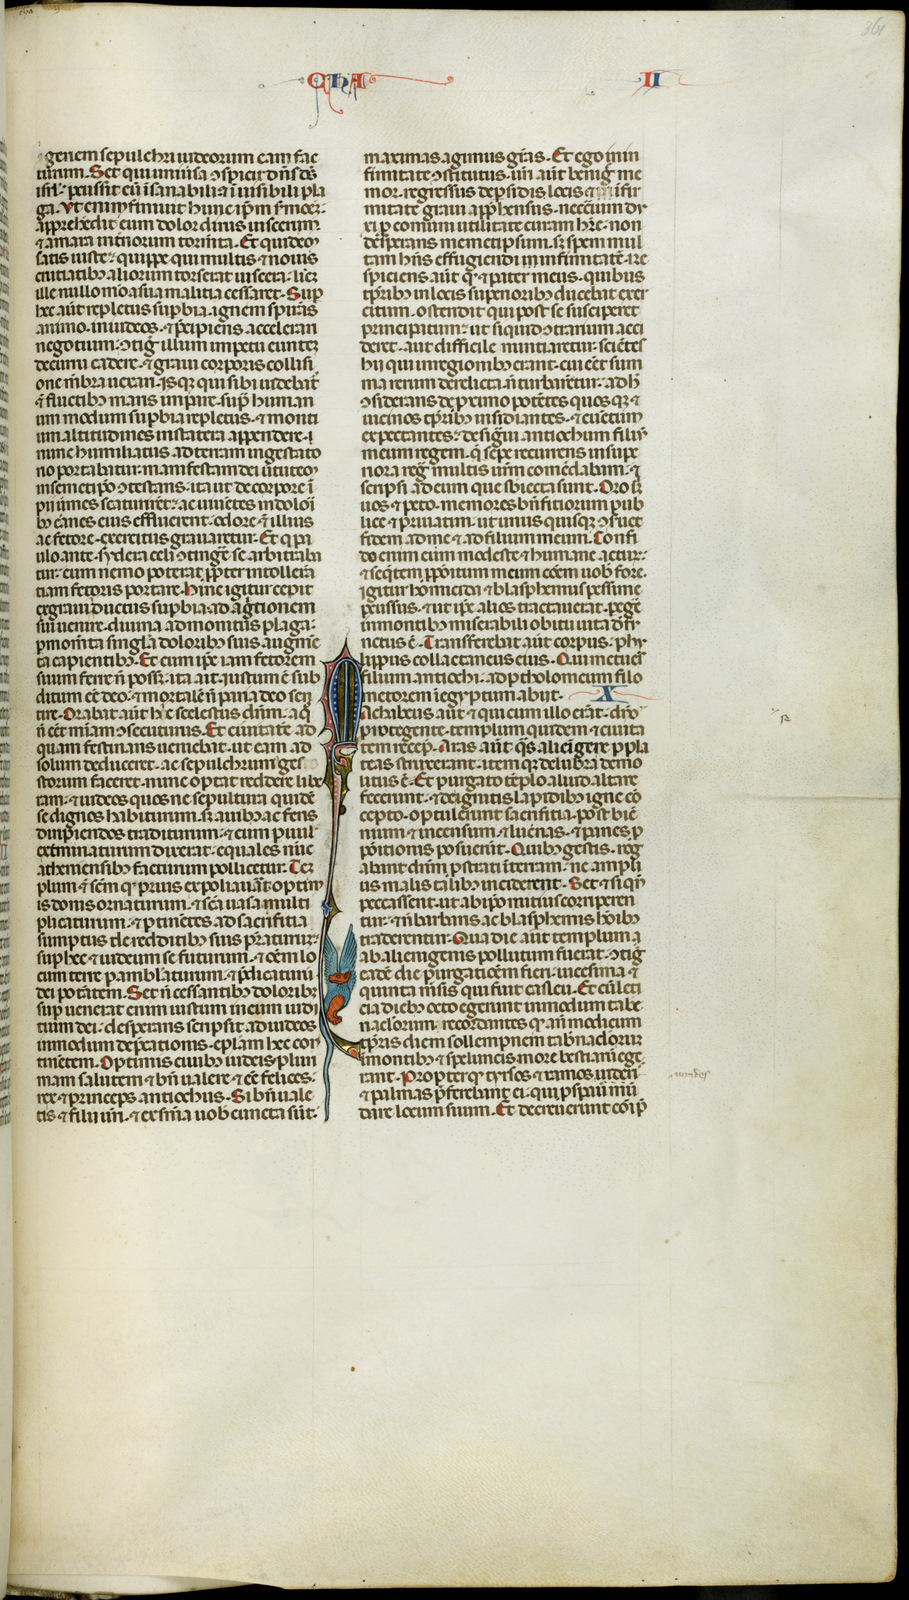 361
CHA II
geriem sepulchri iudeorum eam fac
turum. Set qui uniuersa ɔspicit dn̄s ds̄
isrl'. percussit eū īsanabili ⁊ īuisibili pla
ga. Vt enim finiuit hunc ip̄m s̄mōeꝫ.
apprehendit eum dolor dirus uiscerum.
⁊ amara int̄norum torm̄ta. Et quideꝫ
satis iuste. quippe qui multis ⁊ nouis
cruciatibꝰ aliorum torserat uiscera. licꝫ
ille nullo mō a sua malitia cessaret. Sup
hec aut̄ repletus supbia. ignem spirās
animo. in iudeos. ⁊ p̄cipiens accelerari
negotium. ɔtigit illum impetu euntem
de curru cadere. ⁊ graui corporis collisi
one m̄bra uexari. Isqꝫ qui sibi uidebat̄
⁊ fluctibꝰ maris imperare. sup̄ human
um modum supbia repletus. ⁊ monti
um altitudines in statera appendere.
nunc humiliatus ad terram in gestato
rio portabatur. manifestam dei uirtuteꝫ
in semetip̄o ɔtestans. ita ut de corpore ī
pii uermes scaturirēt. ac uiuētes in dolori
bꝰ carnes eius effluerent. odore ē illius
ac fetore. exercitus grauaretur. Et q̄ pau
ulo ante. sydera celi ɔtingē se arbitraba
tur. eum nemo poterat p̄pter intollerā
tiam fetoris portare. Hinc igitur cepit
ex graui ductus supbia. ad agnitionem
sui uenire. diuina admonitus plaga.
p momēta singla doloribꝰ suis augmē
ta capientibꝰ. Et cum ip̄e iam fetorem
suum ferre n̄ posset. ita ait. Iustum ē sub
ditum eē deo. ⁊ mortalē n̄ paria deo sen
tire. Orabat aūt hic scelestus dn̄m. a q̄
n̄ eēt mīam ɔsecuturus. Et ciuitatē ad
quam festinans ueniebat. ut eam ad
solum deduceret. ac sepulchrum ges
storum faceret. nunc optat reddere libe
ram. ⁊ iudeos quos ne sepultura quidē
se dignos habiturum. sꝫ auibꝰ ac feris
diripiendos traditurum. ⁊ cum paruul
exterminaturum dixerat. equales nūc
atheniensibꝰ facturum pollicetur. Tem
plum ⁊ scm̄ qd̄ prius expoliauāt. optim
is donis ornaturum. ⁊ scā uasa multi
plicaturum. ⁊ ptinētes ad sacrificia
sumptus de redditibꝰ suis pr̄aturum.
sup hec ⁊ iudeum se futurum. ⁊ oēm lo
cum terre p ambulaturum. ⁊ p̄dicaturū
dei potātem. Set n̄ cessantibꝰ doloribꝰ
sup uenerat enim iustum in eum iudi
tium dei. desperans scripsit ad iudeos
in modum dep̄cationis. ep̄lam hec con
tinētem. Optimis ciuibꝰ iudeis. pluri
mam salutem ⁊ bn̄ ualere ⁊ eē felices.
rex ⁊ princeps antiochus. Si bn̄ uale
tis ⁊ filii ur̄i. ⁊ ex sn̄ia uob cuncta sūt.
maximas agimus gr̄as. Et ego in in
firmitate ɔstitutus. ur̄i aūt benigne me
mor. regressus de persidis locis ⁊ in infir
mitate graui app̄hensus. necc̄ium du
xi p comuni utilitate curam hr̄e. non
despērans memetipsum. sꝫ spem mul
tam hn̄s effugiendi in infirmitatē. Re
spiciens aūt qd̄ ⁊ pater meus. quibus
tꝑribꝰ in locis superioribꝰ ducebat exer
citum. ostendit qui post se susciperet
principatum. ut si quid ɔtrarium acci
deret. aut difficile nuntiaretur. scientes
hii qui in regionibꝰ erant. cui eēt sum
ma rerum derelicta. n̄ turbarētur. ad h̄
ɔsiderans de proximo potētes quosqꝫ ⁊
uicinos tꝑribꝰ insidiantes. ⁊ euētum
expectantes. designaui antiochum filiū
meum regem. qm̄ sepe recurrens in supe
riora regna multis ur̄m comēdabam. ⁊
scripsi ad eum que sbiecta sunt. Oro itaqꝫ
uos ⁊ peto. memores bn̄fitiorum pub
lice ⁊ p̄riuatim. ut unus quisqꝫ ɔseruet
fidem ad me ⁊ ad filium meum. Confi
do enim eum modeste ⁊ humane acturum
⁊ seq̄ntem ppositum meum cōem uob fore.
Igitur homicida ⁊ blasphemus pessime
percussus. ⁊ ut ip̄e alios tractauerat. pegre
in montibꝰ miserabili obitu uita defū
nctus ē. Transferebat aūt corpus. phy
lippus collactaneus eius. Qui metues
filium antiochi. ad ptholomeum filo
metorem ī egyptum abiit. X
Machabeus aūt ⁊ qui cum illo erāt. dn̄o
protegente. templum quidem ⁊ ciuita
tem recepit. Aras aūt q̄s alienigere p pla
teas struxerant. item qꝫ delubra demo
litus ē. Et purgato tēplo aliud altare
fecerunt. ⁊ de ignitis lapidibꝰ igne cō
cepto. optulerunt sacrificia. post biē
nium ⁊ incensum. ⁊ lucernas. ⁊ panes p
positionis posuerunt. Quibꝰ gestis. rog
abant dn̄m prostrati in terram. ne ampli
us malis talibꝰ inciderent. Set ⁊ si qn̄
peccassent. ut ab ipō mitius corriperen
tur. ⁊ n̄ barbaris ac blasphemis hoībꝰ
traderentur. Qua die aūt templum a
ab alienigenis pollutum fuerat. ɔtigit
eadē die purgationem fieri. uicesima ⁊
quinta mēsis qui fuit casleu. Et cū leti
cia diebꝰ octo egerunt in modum tabe
naclorum. recordantes qd̄ an̄ modicum
tꝑris diem sollempnem tabnaclorum
ī montibꝰ ⁊ speluncis more bestiarū ege
rant. Propter qd̄ tyrsos ⁊ ramos uirides
⁊ palmas p̄ferebant ei. qui psperauit mū
dare locum suum. Et decreuerunt cōi p̄
uirides